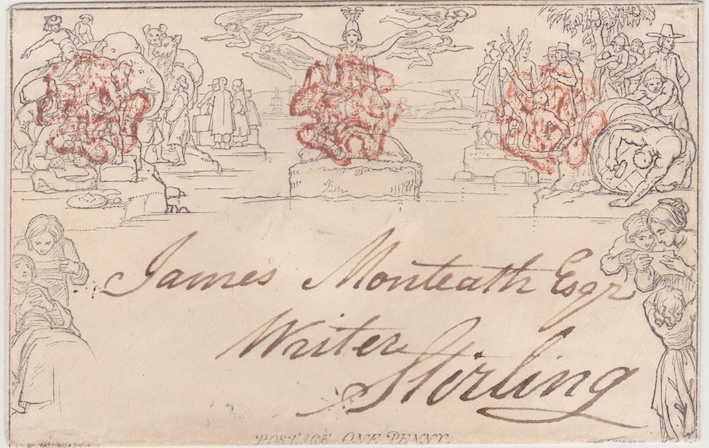 James Monteath Esqr
Writer
Stirling
POSTAGE ONE PENNY.